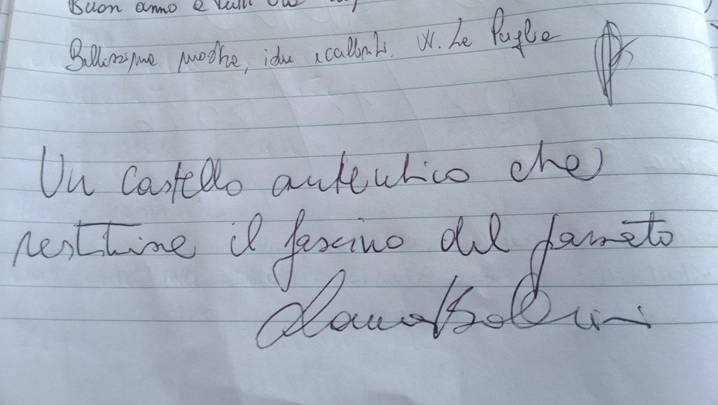 Buon anno a tutti
Bellissima mostra, idee eccellenti. W. La Puglia
Un castello autentico che
restituisce il fascino del passato